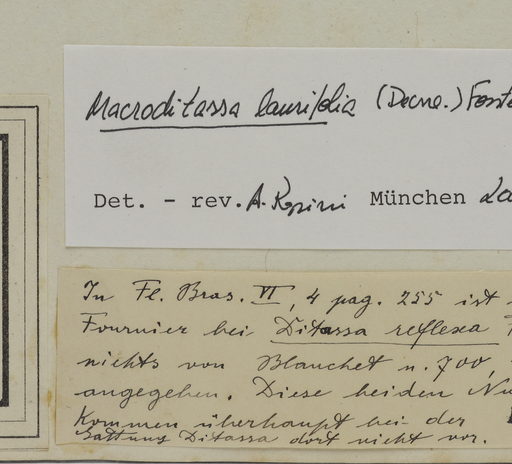 Macroditassa laurifolia (Decne.) Font
Det. - rev. A. Rapini München
In Fl. Bras. VI, 4 pag. 255 ist
Fournier bei Ditassa reflexa
nichts von Blanchet n. 700,
angegeben. Diese beiden Nu
kommen überhaupt bei der
Gattung Ditassa dort nicht vor.